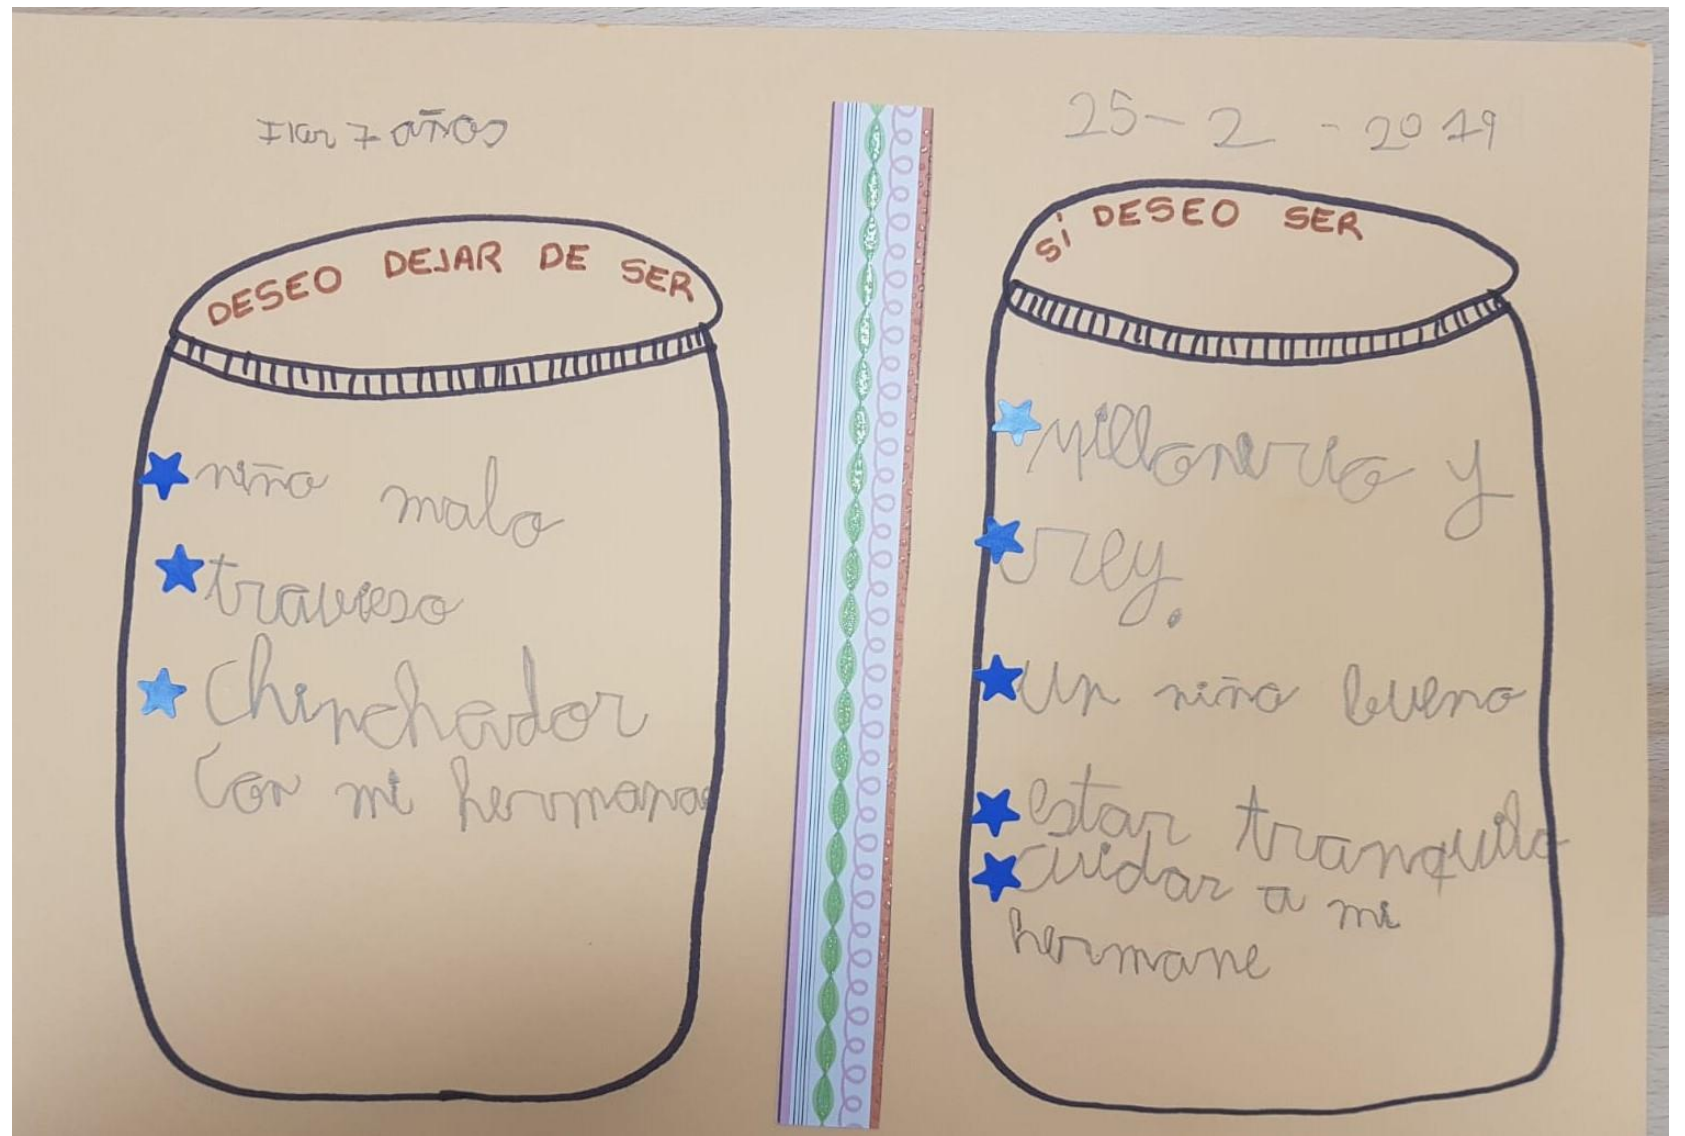 Iker 7 años
DESEO DEJAR DE SER
niño malo
travieso
Chinchador
Con mi hermana
25-2-2019
SÍ DESEO SER
millonario y
rey.
un niño bueno
estar tranquilo
cuidar a mi
hermane